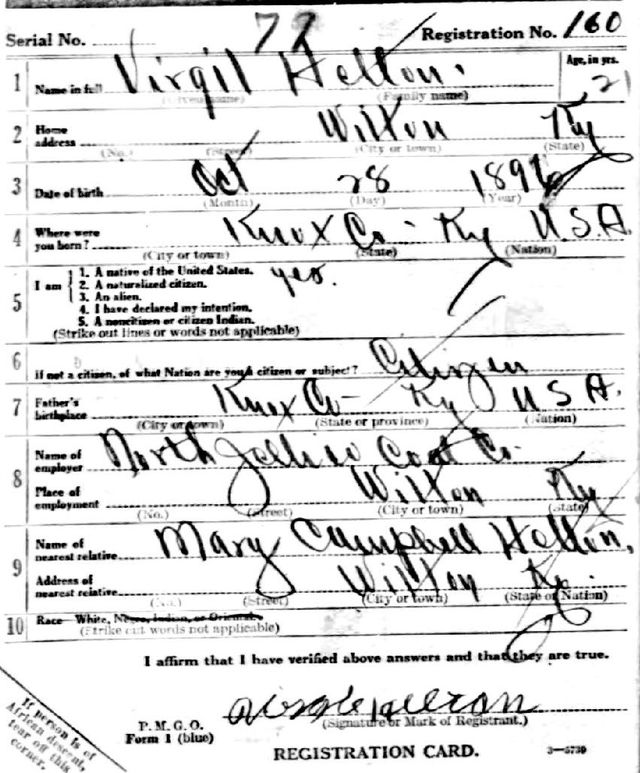 Serial No. 77 Registration No. 160
1 Name in full Virgil Helton. Age, in yrs. 21
(Given name) (Family name)
2 Home address Wilton Ky
(No.) (Street) (City or town) (State)
3 Date of birth Oct 28 1896
(Month) (Day) (Year)
4 Where were you born? Knox Co - Ky U.S.A.
(City or town) (State) (Nation)
5 I am 1. A native of the United States. yes.
2. A naturalized citizen.
3. An alien.
4. I have declared my intention.
5. A noncitizen or citizen Indian.
(Strike out lines or words not applicable)
6 If not a citizen, of what Nation are you a citizen or subject? Citizen
7 Father's birthplace Knox Co - Ky U S A.
(City or town) (State or province) (Nation)
8 Name of employer North Jellico Coal Co.
Place of employment Wilton Ky
(No.) (Street) (City or town) (State)
9 Name of nearest relative Mary Campbell Helton,
Address of nearest relative Wilton Ky.
(No.) (Street) (City or town) (State or Nation)
10 Race—White, Negro, Indian, or Oriental.
(Strike out words not applicable)
I affirm that I have verified above answers and that they are true.
If person is of
African descent,
tear off this
corner.
P. M. G. O.
Form 1 (blue)
Virgil Helton
(Signature or Mark of Registrant.)
REGISTRATION CARD. 3—5739